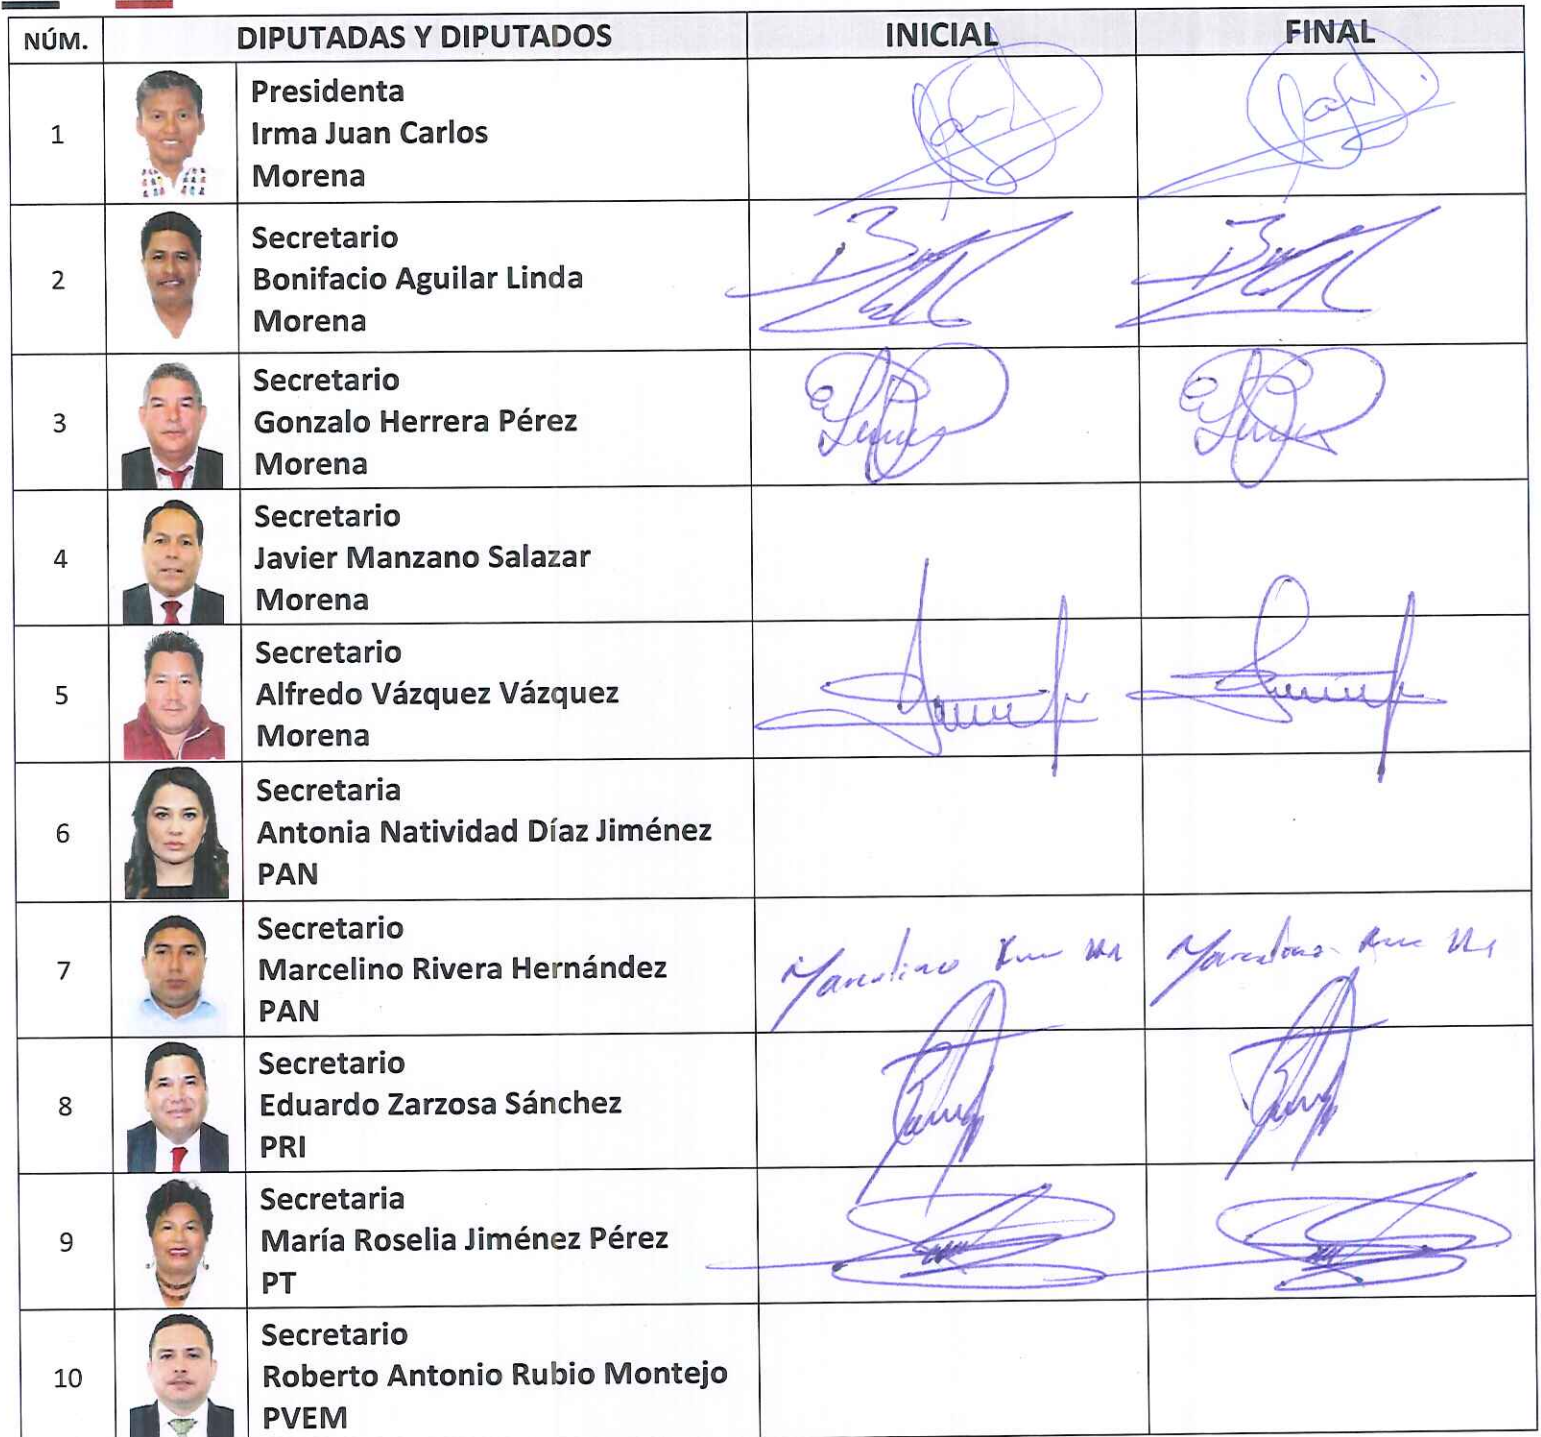 NÚM. DIPUTADAS Y DIPUTADOS INICIAL FINAL
Presidenta
1 Irma Juan Carlos
Morena
Secretario
2 Bonifacio Aguilar Linda
Morena
Secretario
3 Gonzalo Herrera Pérez
Morena
Secretario
4 Javier Manzano Salazar
Morena
Secretario
5 Alfredo Vázquez Vázquez
Morena
Secretaria
6 Antonia Natividad Díaz Jiménez
PAN
Secretario
7 Marcelino Rivera Hernández Marcelino
PAN
Secretario
8 Eduardo Zarzosa Sánchez
PRI
Secretaria
9 María Roselia Jiménez Pérez
PT
Secretario
10 Roberto Antonio Rubio Montejo
PVEM